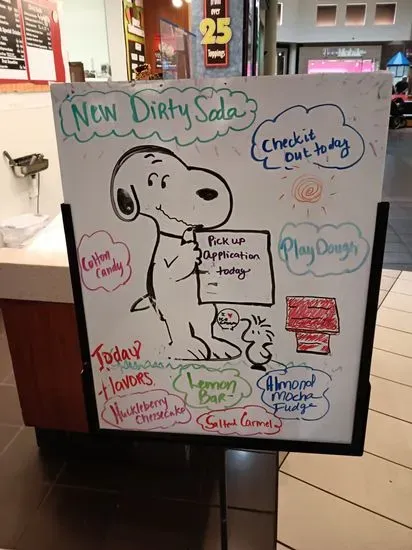 from over
25
Toppings
New Dirty Soda
Check it
out today
Pick up
Application
today
Play Dough
Cotton
Candy
I ♥
Today?
flavors.
Lemon
Bar-
Almond
mocha
Fudge
Huckleberry
Cheesecake
Salted Carmel